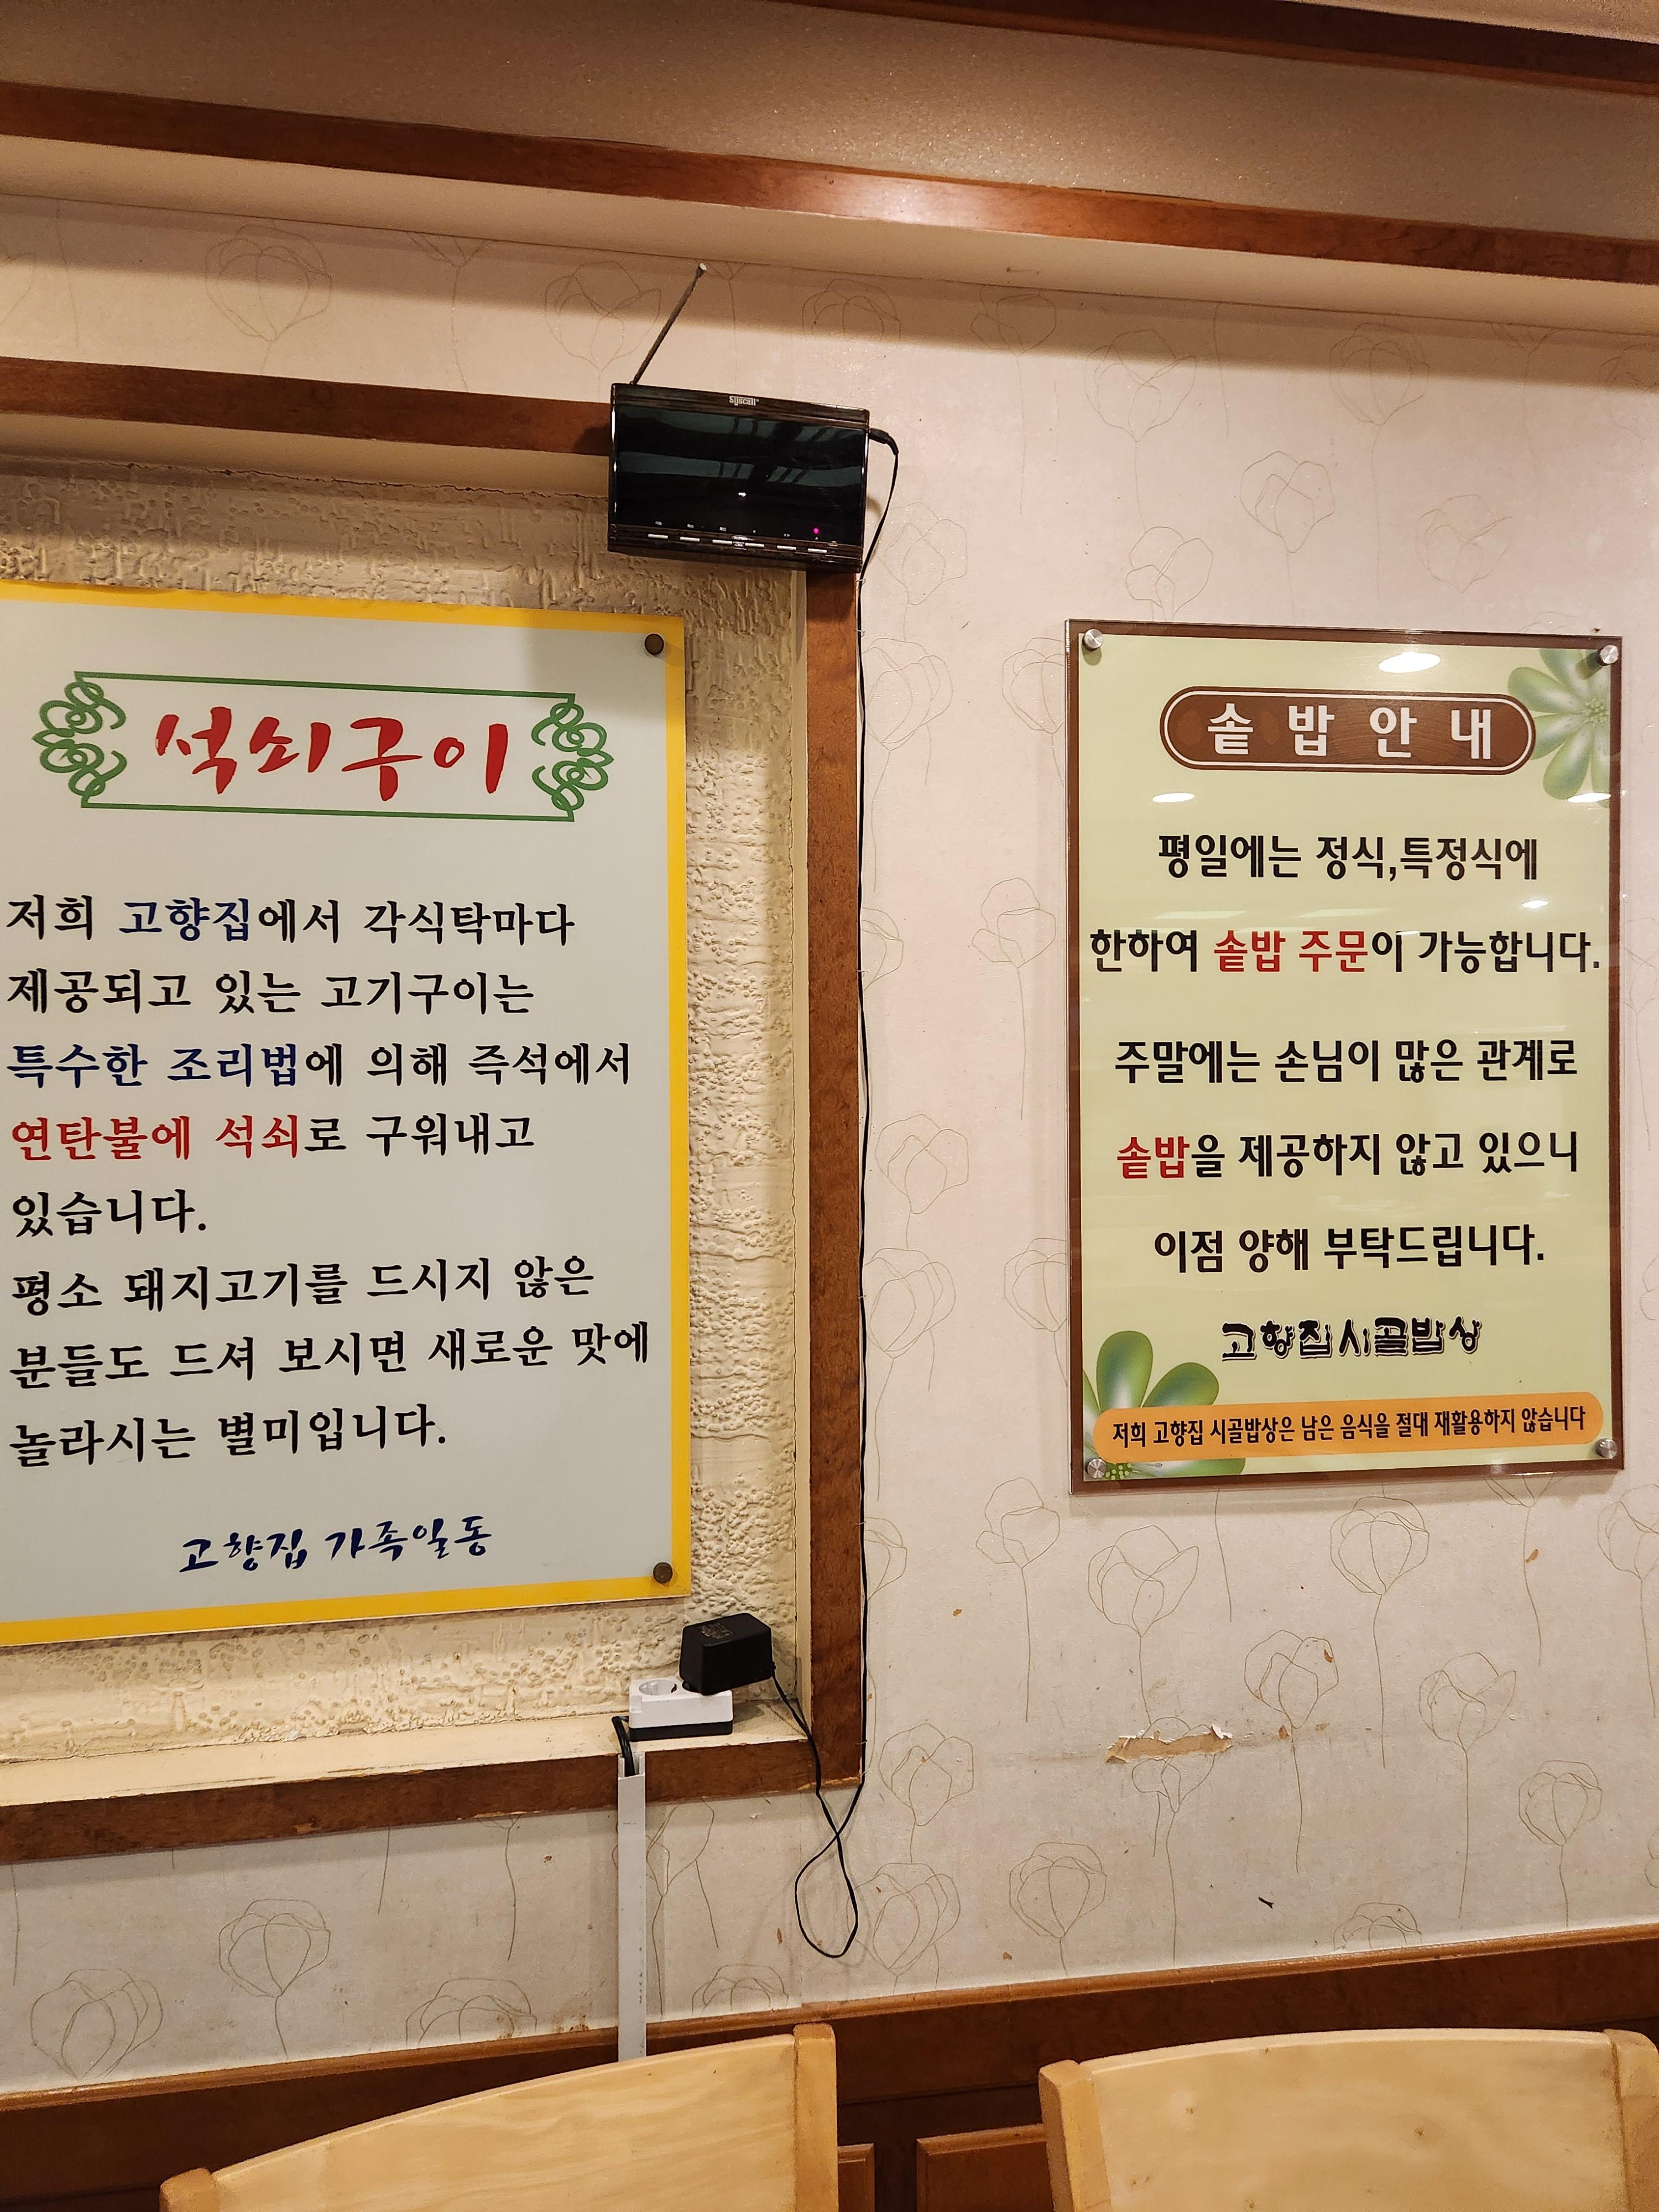 Syscall
석쇠구이
저희 고향집에서 각식탁마다
제공되고 있는 고기구이는
특수한 조리법에 의해 즉석에서
연탄불에 석쇠로 구워내고
있습니다.
평소 돼지고기를 드시지 않은
분들도 드셔 보시면 새로운 맛에
놀라시는 별미입니다.
고향집 가족일동
솥밥안내
평일에는 정식,특정식에
한하여 솥밥 주문이 가능합니다.
주말에는 손님이 많은 관계로
솥밥을 제공하지 않고 있으니
이점 양해 부탁드립니다.
고향집시골밥상
저희 고향집 시골밥상은 남은 음식을 절대 재활용하지 않습니다